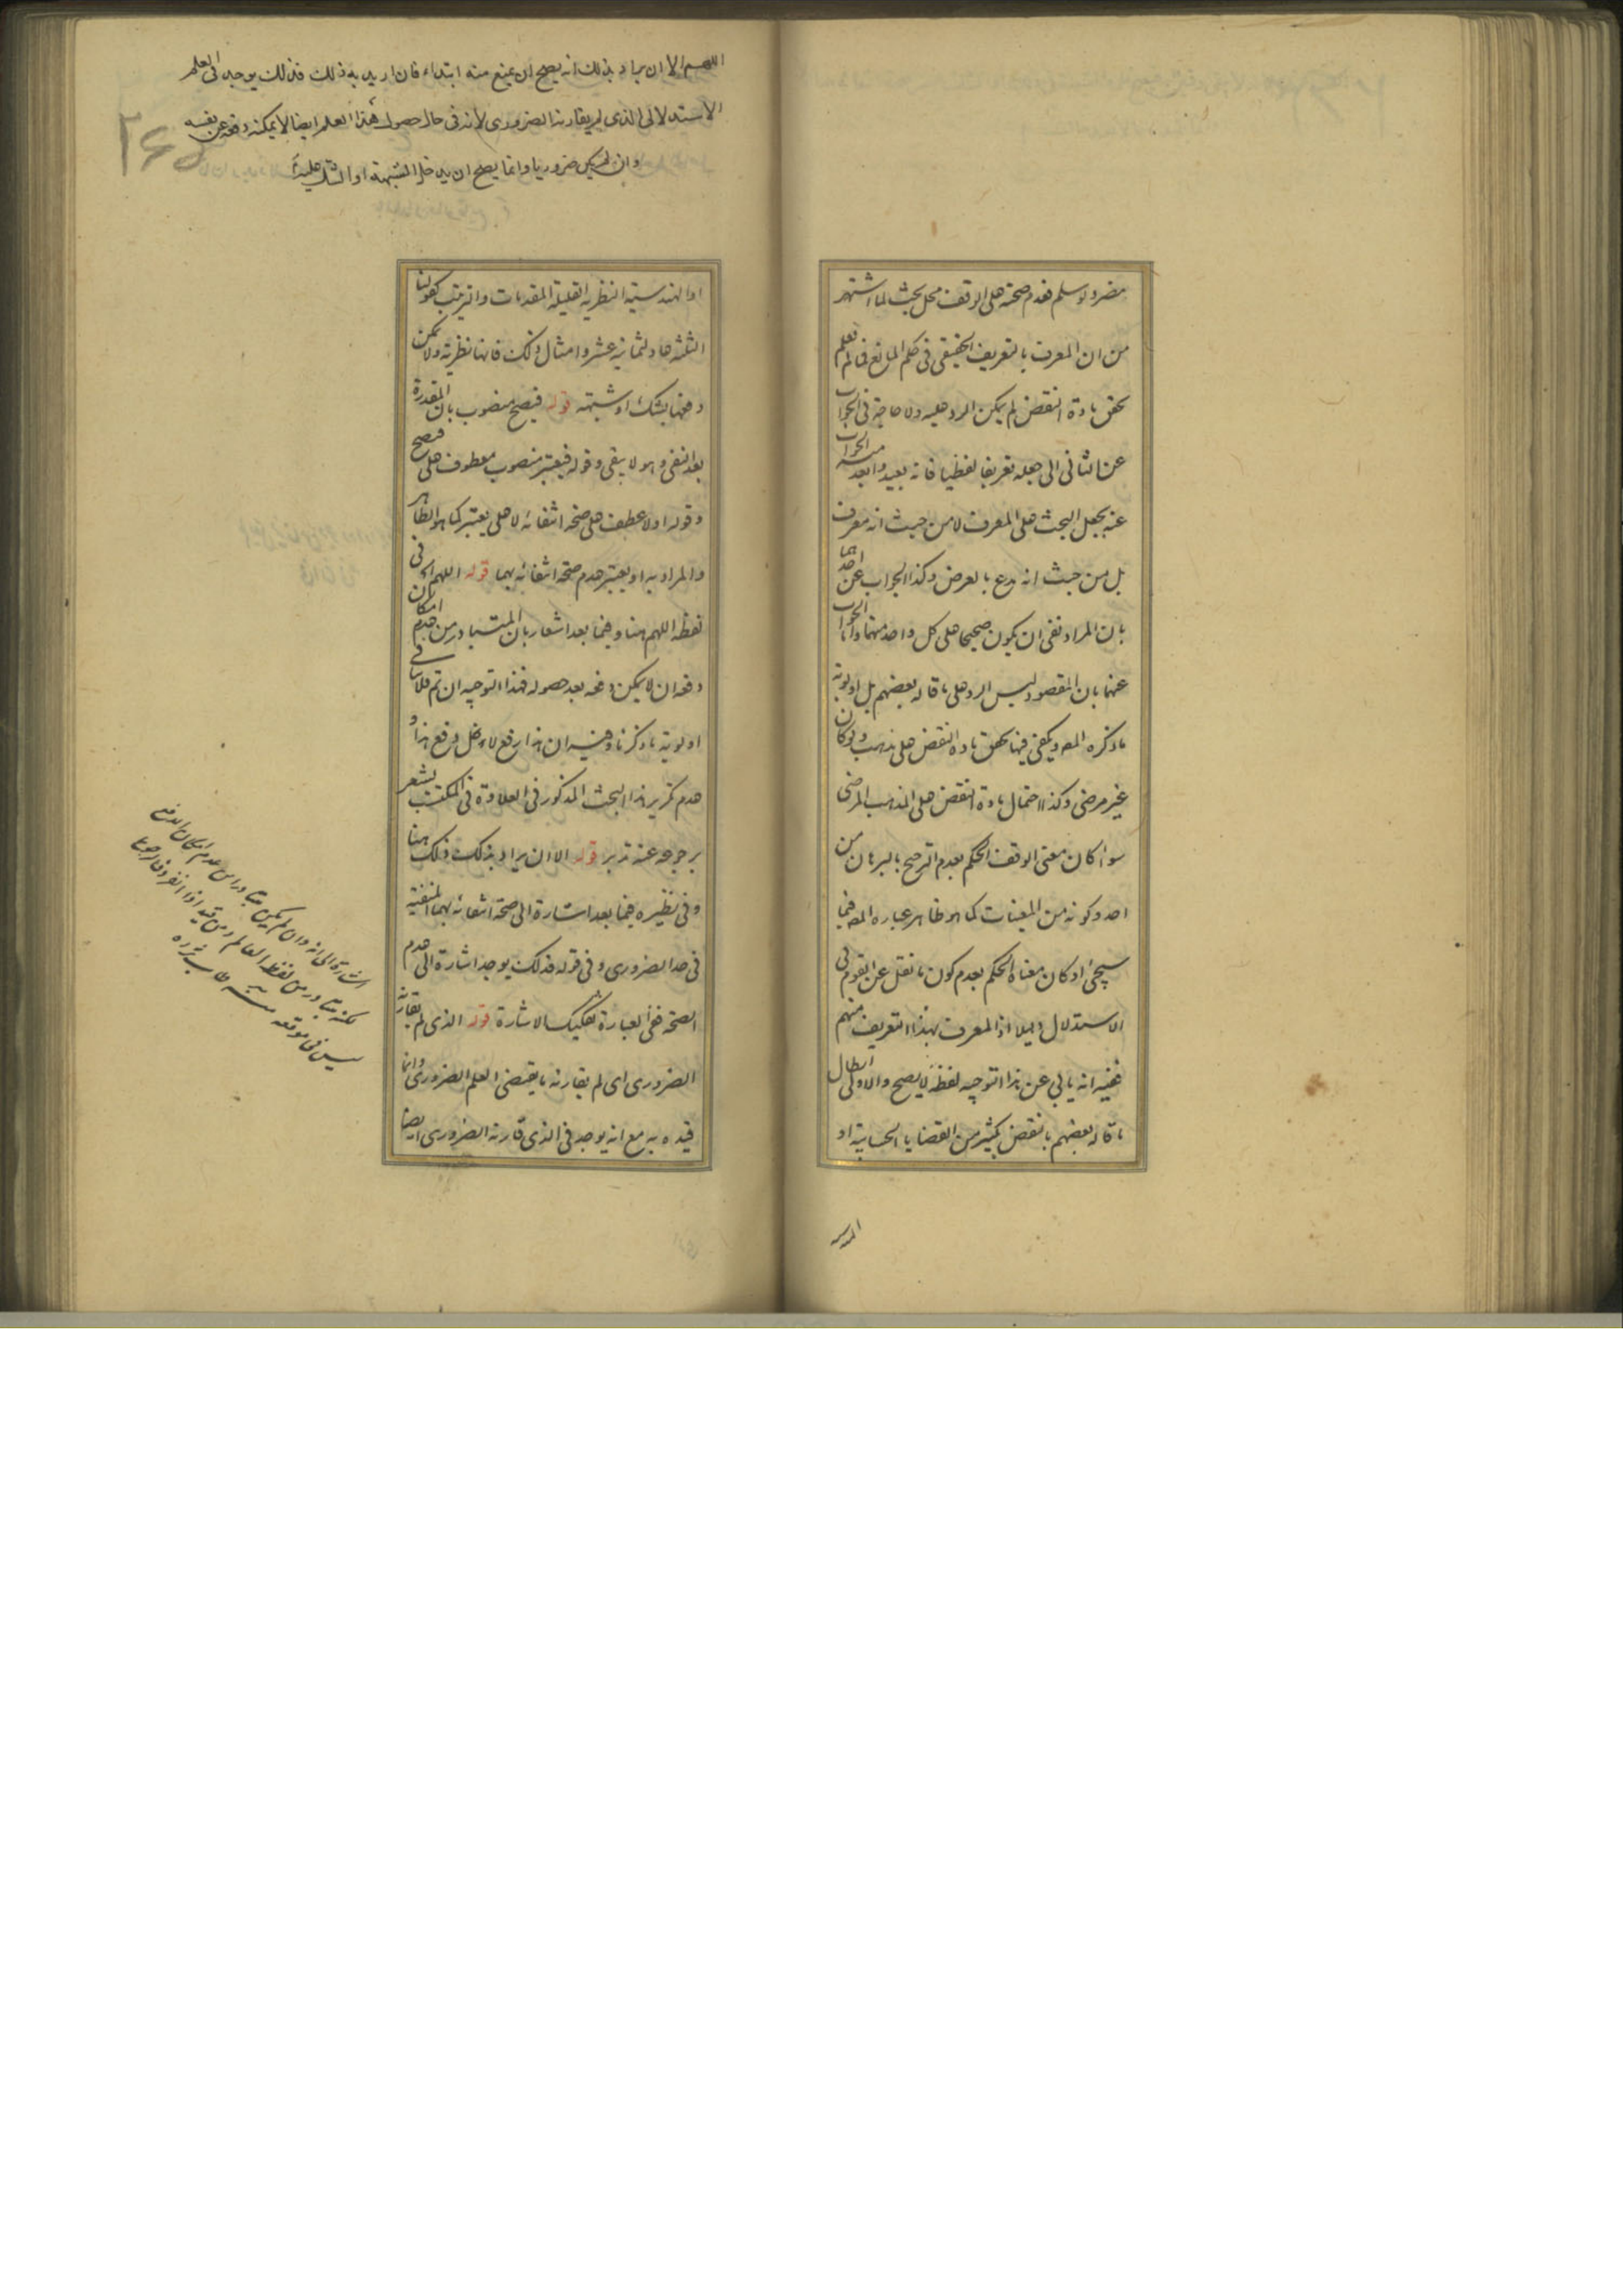 مضر ولو سلم فعدم صحته على الوقف محل بحث لما اشتهر
من ان المعرف بالتعريف الحقيقى فى حكم المانع فما لم تعلم
تحقق مادة النقض لم يمكن الرد عليه ولا حاجة فى الجواب
عن الثانى الى جعله تعريفا لفظيا فانه بعيد وابعد منه الجواب
عنه بجعل البحث على المعرف لا من حيث انه معرف
بل من حيث انه مدع بالعرض وكذا الجواب عن احدهما
بان المراد نفى ان يكون صحيحا على كل واحد منهما واما الجواب
عنهما بان المقصود ليس الرد على ما قاله بعضهم بل اولوية
ما ذكره المص ويكفى فيها تحقق مادة النقض على مذهب ولو كان
غير مرضى وكذا احتمال مادة النقض على المذهب المرضى
سواء كان معنى الوقف الحكم بعدم الترجح بالبرهان من
احد وكونه من المعينات كما هو ظاهر عبارة المص فيما
سيجئ او كان معناه الحكم بعدم كون ما نقل عن القوم فى
الاستدلال دليلا اذ المعرف بهذا التعريف منهم
ففيه انه يابى عن هذا التوجيه لفظة لا يصح والاولى ابطال
ما قاله بعضهم بالنقض بكثير من القضايا الحسابية او
الهندسـ
اللهم الا ان يراد بذلك انه يصح ان يمنع منه ابتداء فان اريد به ذلك فذلك يوجد فى العلم
الاستدلالى الذى لم يقارنه الضرورى لانه فى حال حصول هذا العلم ايضا لا يمكنه دفعه عن نفسه
وان لم يكن ضروريا وانما يصح ان يدخل الشبهة او الشك عليه
٢٤
او الهندسية النظرية القليلة المقدمات والترتيب كقولنا
الثلثة جاد لثمانية عشر وامثال ذلك فانها نظرية ولا يمكن
دفعها بشك او شبهة قوله فيصح منصوب بان المقدرة
بعد النفى وهو لا يبقى وقوله فيعتبر منصوب معطوف على فيصح
وقوله اولا عطف على صحة انتفائه لا على يعتبر كما هو الظاهر
والمراد به او يعتبر عدم صحة انتفائه بهما قوله اللهم آه فى
لفظة اللهم هنا وفيما بعد اشعار بان المتبادر من عدم امكان
دفعه ان لا يمكن دفعه بعد حصوله فهذا التوجيه ان تم فلا ينافى
اولوية ما ذكرنا وفيه ان هذا رفع لا دخل دفع هذا و
عدم تكرير هذا البحث المذكور فى العلاوة فى المكتسب يشعر
برجوعه عنه تدبر قوله الا ان يراد بذلك ذلك هنا
وفى نظيره فيما بعد اشارة الى صحة انتفائه بهما المنفية
فى حد الضرورى وفى قوله فذلك يوجد اشارة الى عدم
الصحة ففى العبارة تفكيك الاشارة قوله الذى لم يقارنه
الضرورى اى لم يقارنه ما يقتضى العلم الضرورى وانما
قيده به مع انه يوجد فى الذى قارنه الضرورى ايضا
اشارة الى انه وان لم يكن متبادرا من عدم امكان الدفع
لكنه متبادر من لفظ
ليس فى موقعه منه